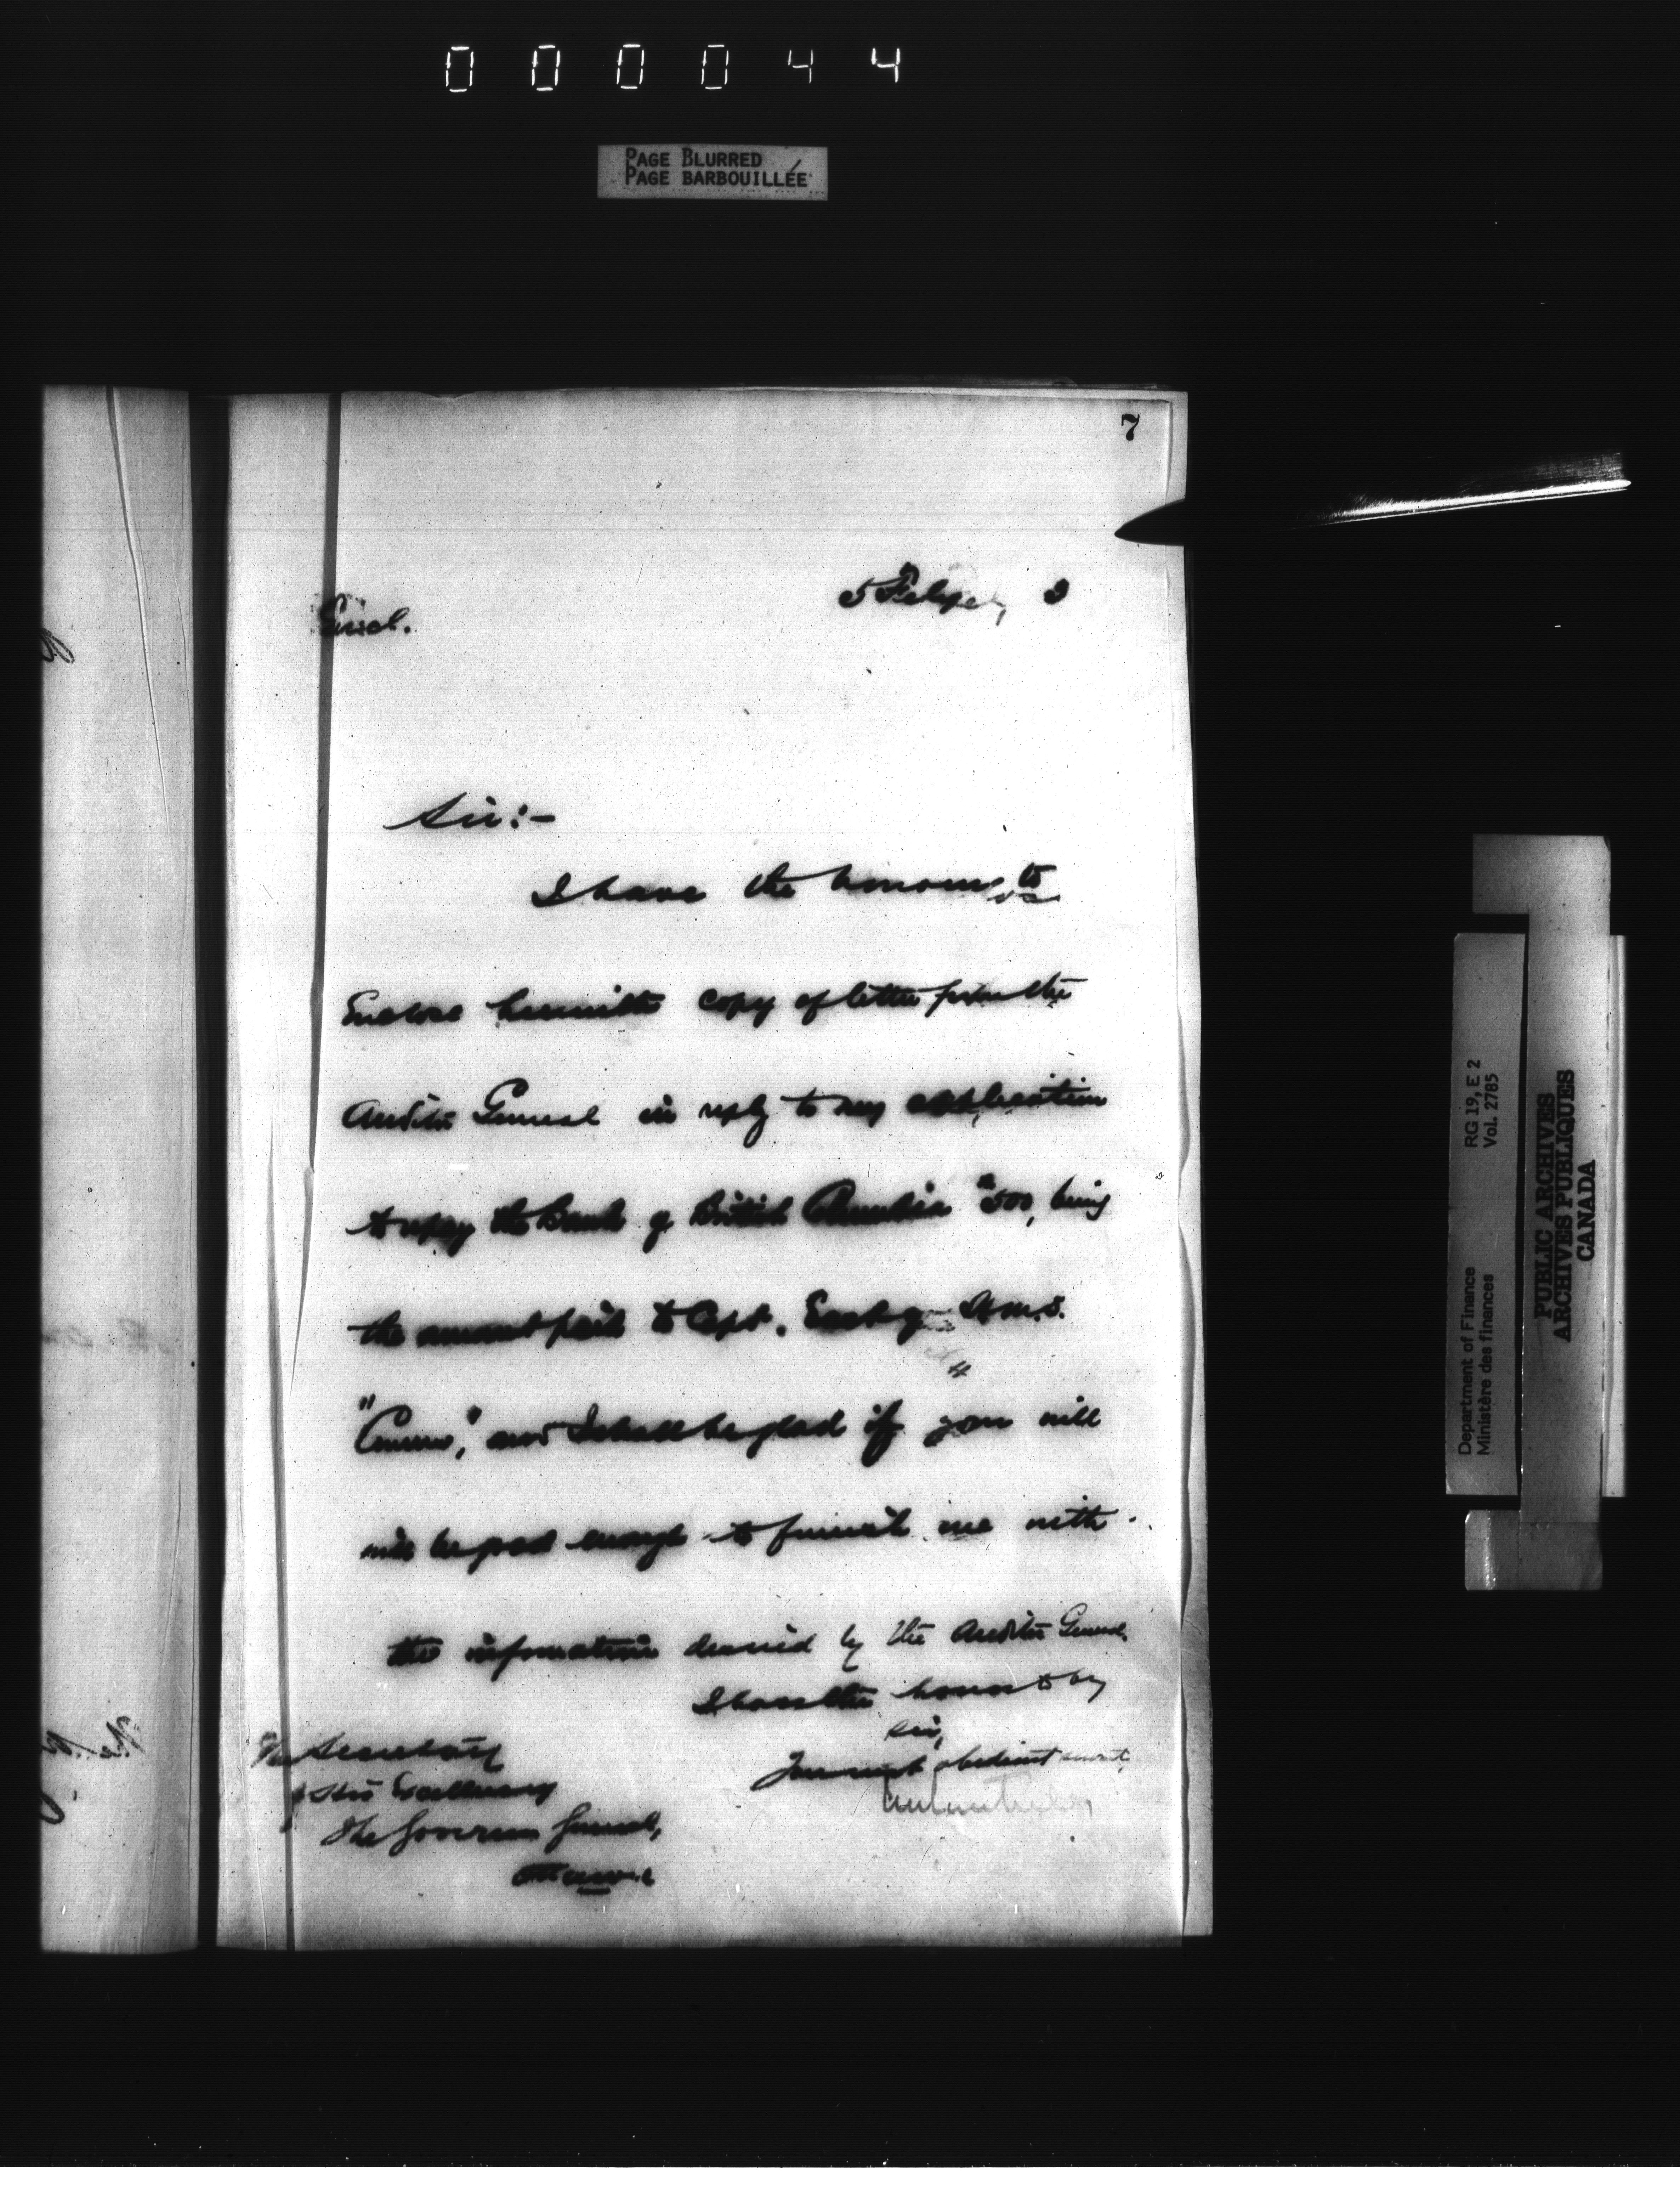 000044
PAGE BLURRED
PAGE BARBOUILLÉE
7
5 Feby, 3
Encl.
Sir:-
I have the honour to
Enclose herewith copy of letter from the
Auditor General in reply to my application
to repay the Bank of British Columbia $500, being
the amount paid to Capt. H.M.S.
and I shall be glad if you will
will be good enough to furnish me with
the information desired by the Auditor General.
I have the honor to be,
Sir,
Your most obedient servant,
The Secretary
of His Excellency
The Governor General,
Ottawa
Department of Finance RG 19, E 2
Ministère des finances Vol. 2785
PUBLIC ARCHIVES
ARCHIVES PUBLIQUES
CANADA